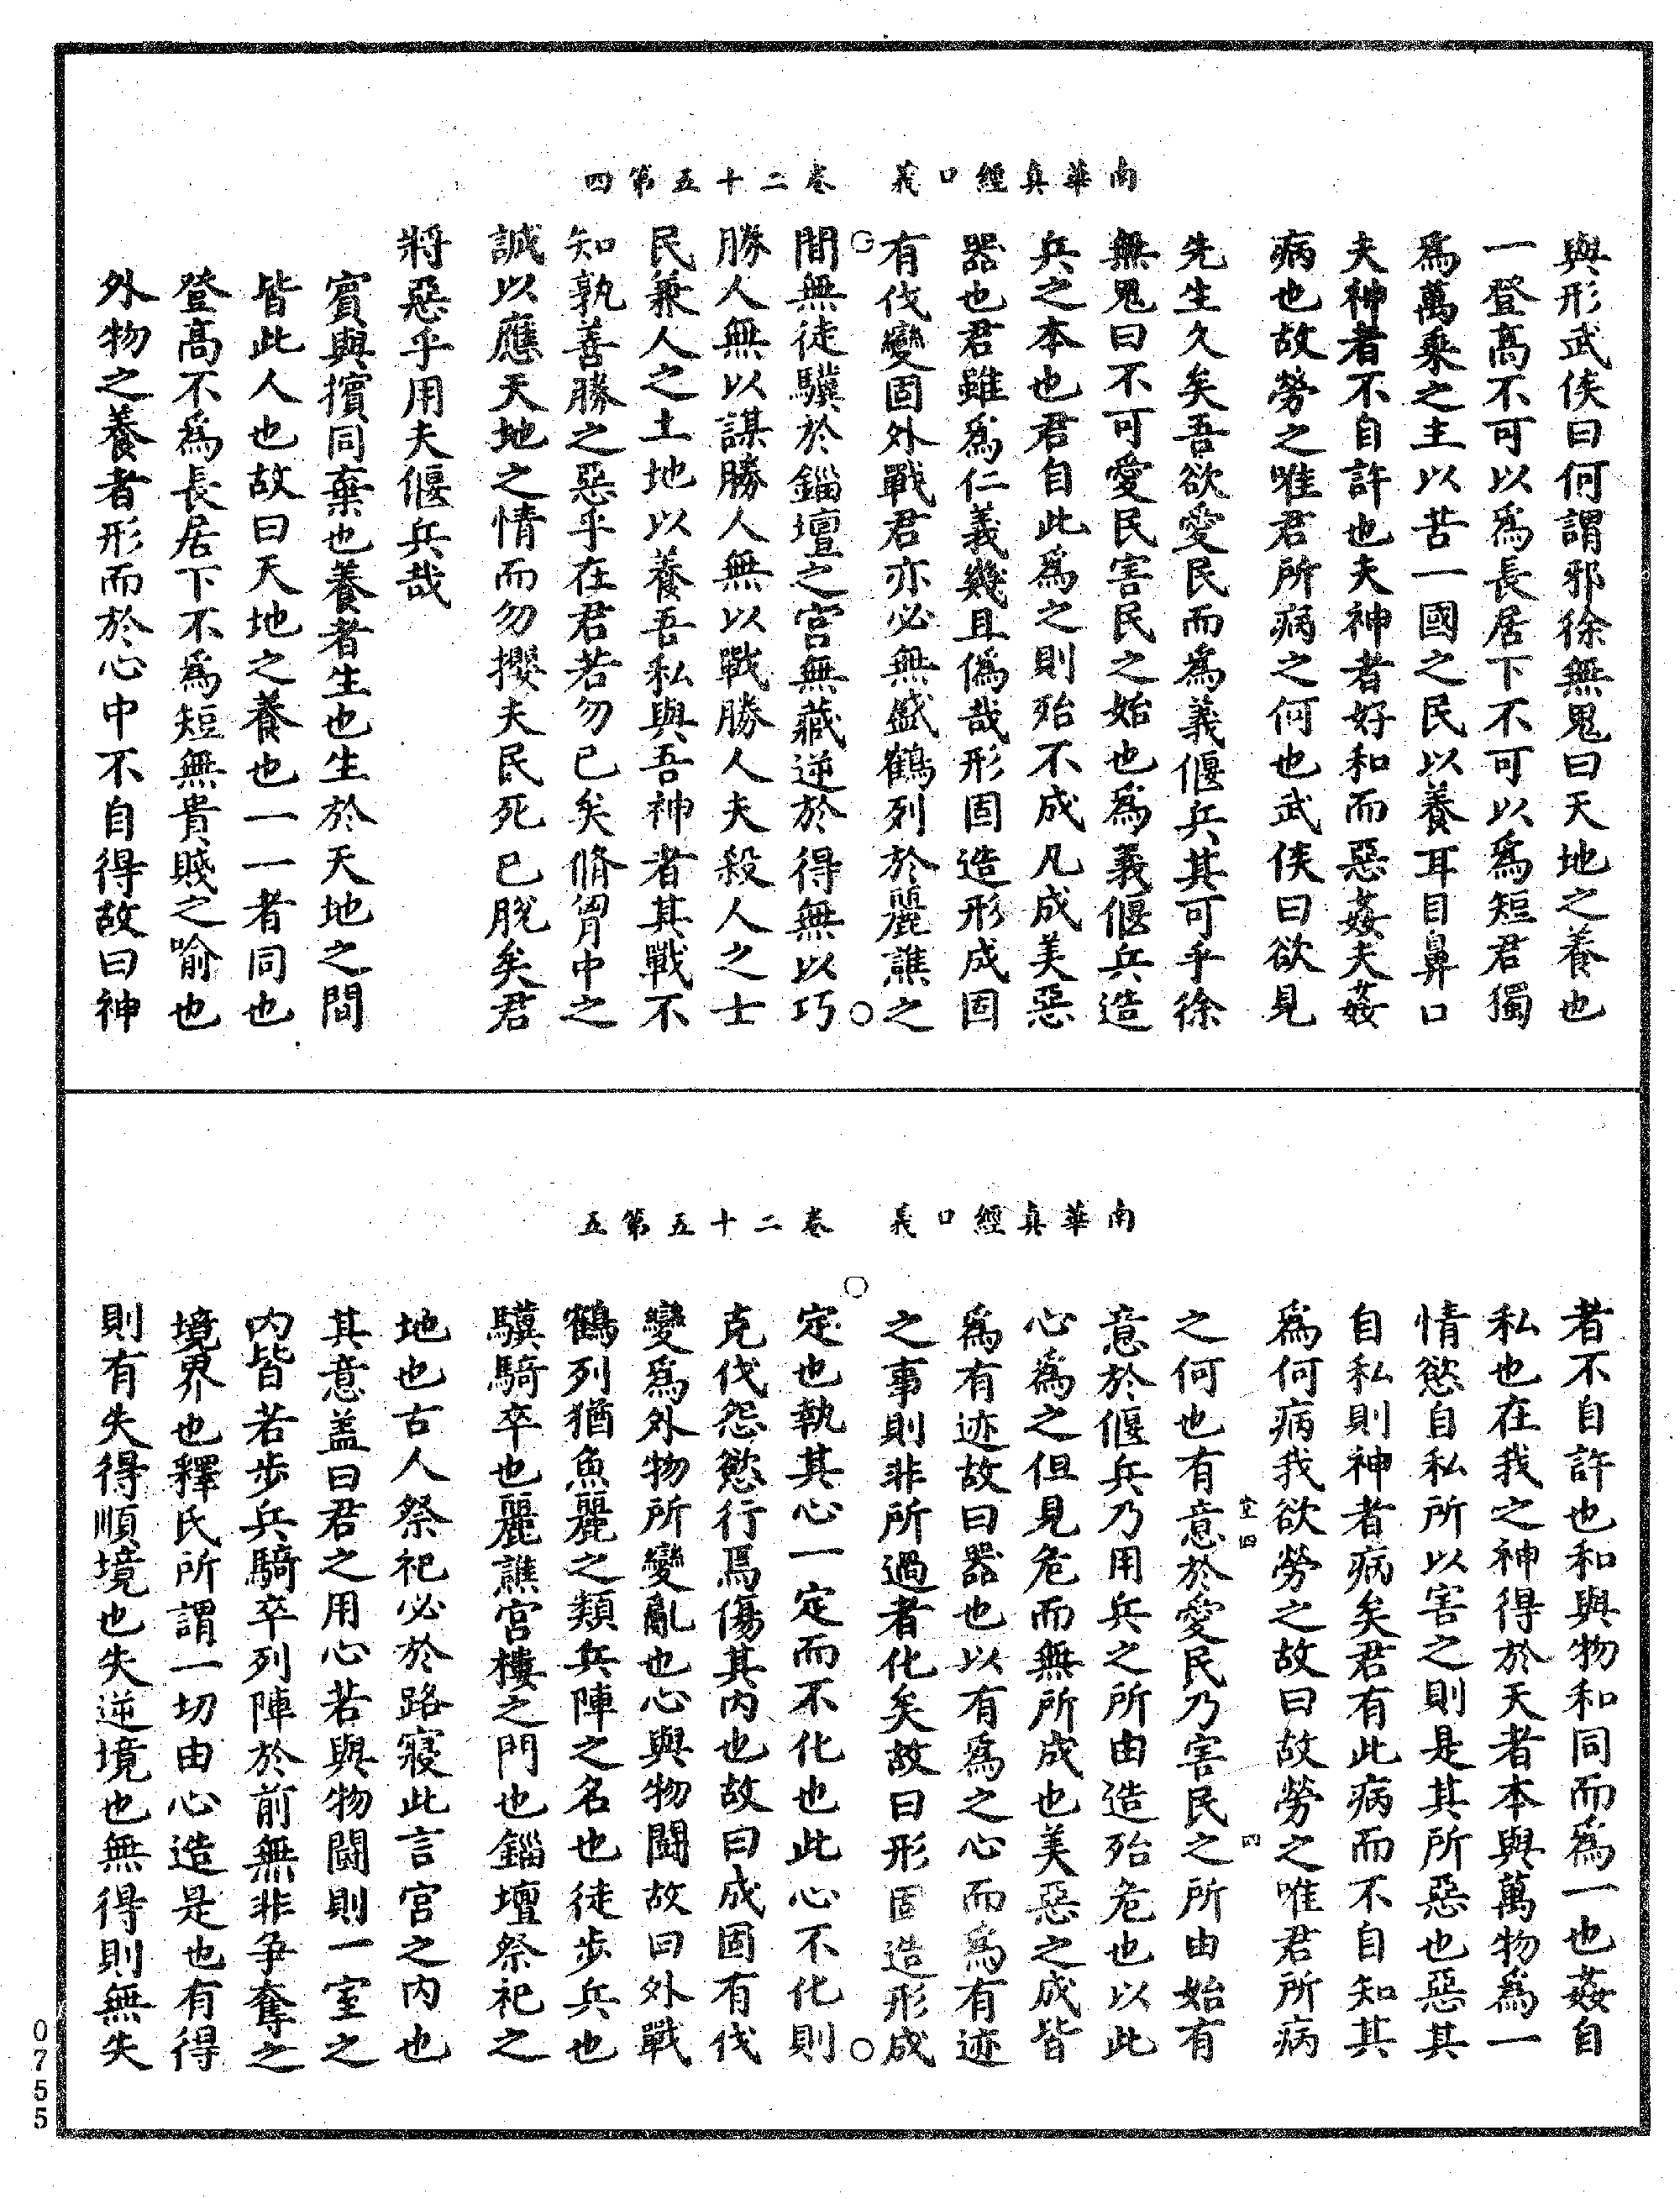 南華真經口義　卷二十五第四
與形武侯曰何謂邪徐無鬼曰天地之養也
一登高不可以爲長居下不可以爲短君獨
爲萬乘之主以苦一國之民以養耳目鼻口
夫神者不自許也夫神者好和而惡姦夫姦
病也故勞之唯君所病之何也武侯曰欲見
先生久矣吾欲愛民而爲義偃兵其可乎徐
無鬼曰不可愛民害民之始也爲義偃兵造
兵之本也君自此爲之則殆不成凡成美惡
器也君雖爲仁義幾且偽哉形固造形成固
有伐變固外戰君亦必無盛鶴列於麗譙之
間無徒驥於錙壇之宮無藏逆於得無以巧
勝人無以謀勝人無以戰勝人夫殺人之士
民兼人之土地以養吾私與吾神者其戰不
知孰善勝之惡乎在君若勿已矣脩胷中之
誠以應天地之情而勿攖夫民死已脫矣君
將惡乎用夫偃兵哉
賓與擯同棄也養者生也生於天地之間
皆此人也故曰天地之養也一一者同也
登高不爲長居下不爲短無貴賤之喻也
外物之養者形而於心中不自得故曰神
南華真經口義　卷二十五第五
者不自許也和與物和同而爲一也姦自
私也在我之神得於天者本與萬物爲一
情慾自私所以害之則是其所惡也惡其
自私則神者病矣君有此病而不自知其
爲何病我欲勞之故曰故勞之唯君所病
之何也有意於愛民乃害民之所由始有
意於偃兵乃用兵之所由造殆危也以此
心爲之但見危而無所成也美惡之成皆
爲有迹故曰器也以有爲之心而爲有迹
之事則非所過者化矣故曰形固造形成
定也執其心一定而不化也此心不化則
克伐怨慾行焉傷其内也故曰成固有伐
變爲外物所變亂也心與物鬪故曰外戰
鶴列猶魚麗之類兵陣之名也徒步兵也
驥騎卒也麗譙宮樓之門也錙壇祭祀之
地也古人祭祀必於路寢此言宮之内也
其意盖曰君之用心若與物鬪則一室之
内皆若步兵騎卒列陣於前無非争奪之
境界也釋氏所謂一切由心造是也有得
則有失得順境也失逆境也無得則無失
0755